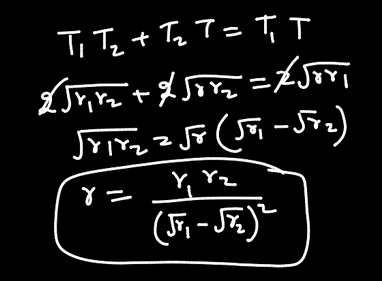 T₁ T₂ + T₂ T = T₁ T
2√r₁r₂ + 2√rr₂ = 2√rr₁
√r₁r₂ = √r (√r₁ - √r₂)
r = r₁ r₂ / (√r₁ - √r₂)²